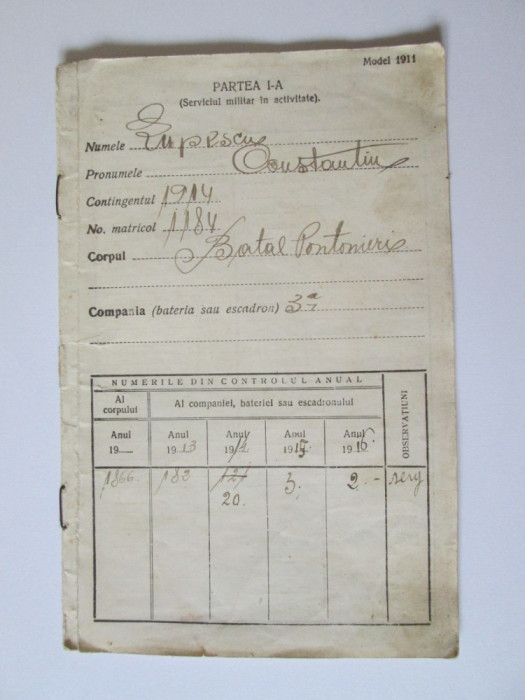 Model 1911
PARTEA I-A
(Serviciul militar în activitate).
Numele Lupescu
Pronumele Constantin
Contingentul 1914
No. matricol 1184
Corpul Batal Pontonieri
Compania (bateria sau escadron) 3a
NUMERILE DIN CONTROLUL ANUAL
Al corpului
Al companiei, bateriei sau escadronului
OBSERVAȚIUNI
Anul 19
Anul 1913
Anul 1914
Anul 1915
Anul 1916
1866 182 121 3. 2.- serg
20